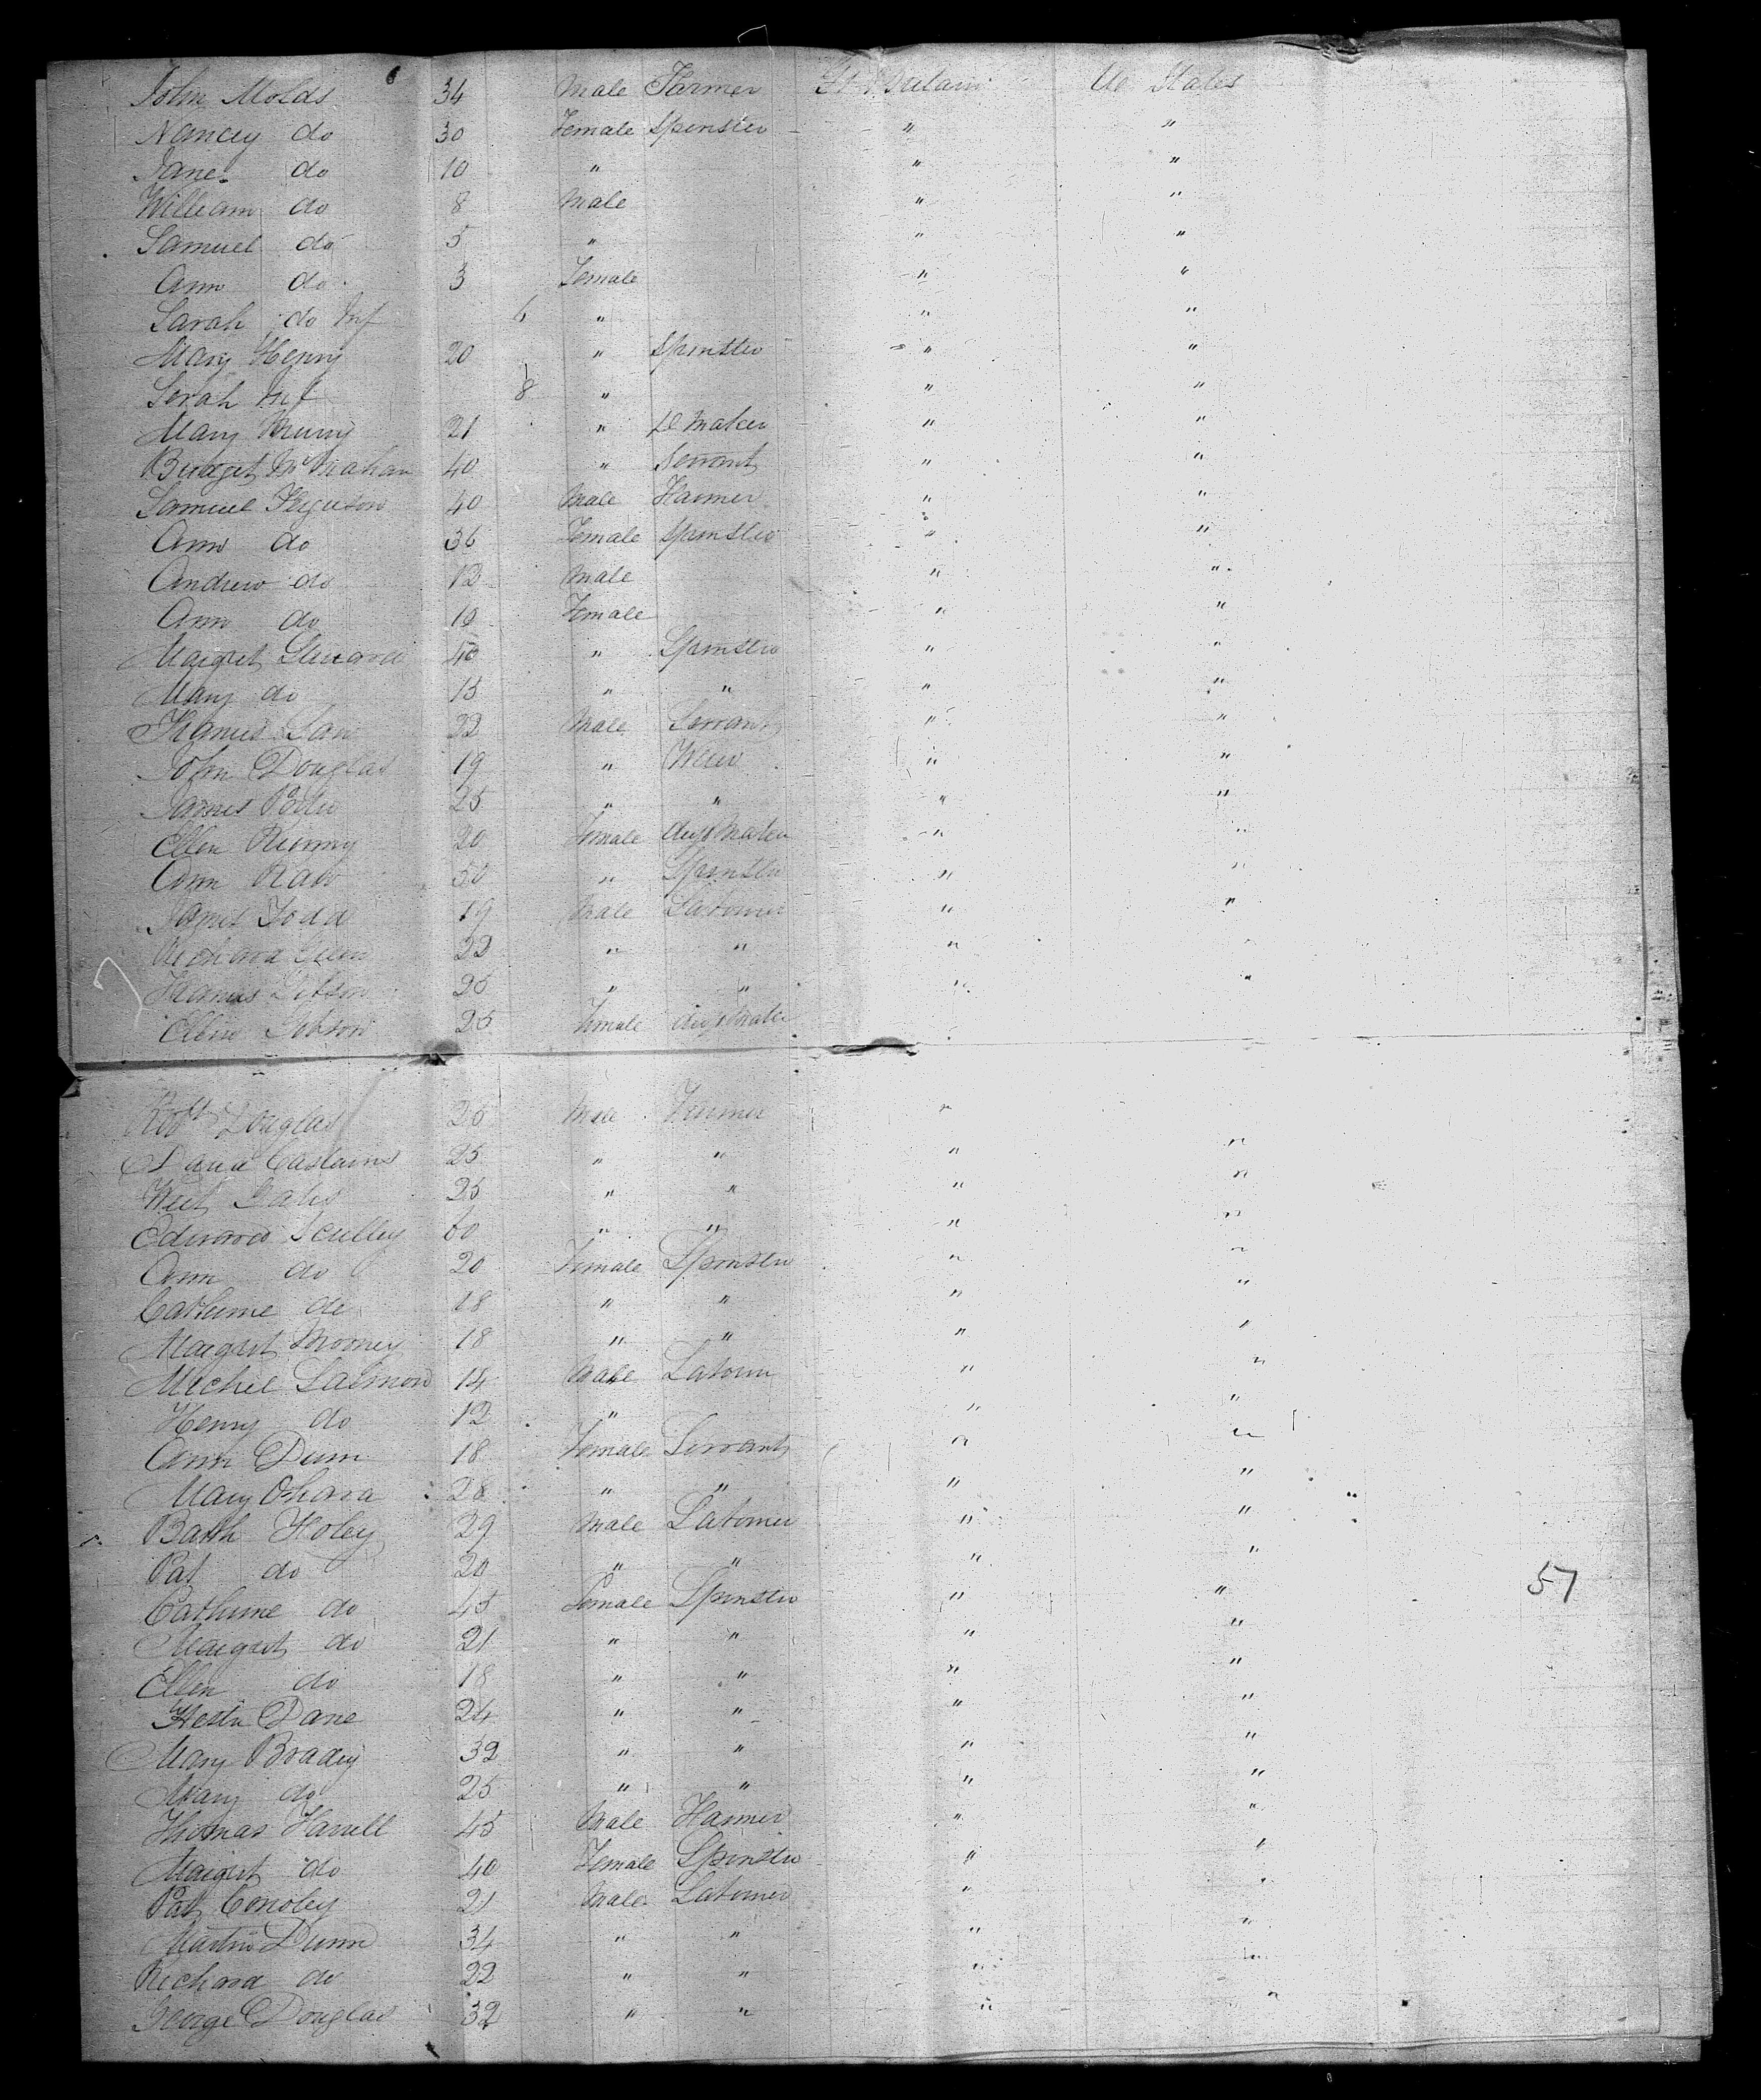 John Molds 34 Male Farmer Gt Britain Ud States
Nancey do 30 Female Spinster " "
Jane do 10 " " "
William do 8 Male " "
Samuel do 5 " " "
Ann do 3 Female " "
Sarah do Inf 6 " " "
Mary Henry 20 " Spinster " "
Sarah Inf 8 " " "
Mary Murry 21 " D Maker " "
Bridget 40 " Servant " "
Samuel Ferguson 40 Male Farmer " "
Ann do 36 Female Spinster " "
Andrew do 12 Male " "
Ann do 10 Female " "
Margret 40 " Spinster " "
Mary do 15 " " " "
22 Male Servant " "
John Douglas 19 " " "
James 25 " " " "
Ellen 20 Female " "
Ann 50 " Spinster " "
James Todd 19 Male Labourer " "
Richard 22 " " " "
Gibson 25 " " " "
Gibson 25 Female
Robt Douglas 25 Male Farmer "
25 " " " "
25 " " " "
Edward Sculley 60 " " " "
Ann do 20 Female Spinster " "
Catherine do 18 " " " "
Margret Mooney 18 " " " "
Michel Salmon 14 Male Labourer " "
Henry do 12 " " "
Ann Dunn 18 Female Servant " "
Mary Ohara 28 " " " "
Barth Holey 29 Male Labourer " "
Pat do 20 " " " "
Catherine do 45 Female Spinster " " 57
Margret do 21 " " " "
Ellen do 18 " " " "
Hester Dane 24 " " " "
Mary Brady 32 " " " "
Mary do 25 " " " "
Thomas 45 Male Farmer " "
Margret do 40 Female Spinster " "
Pat Conoley 21 Male Labourer " "
Martin Dunn 34 " " " "
Richard do 22 " " " "
George Douglas 32 " " " "